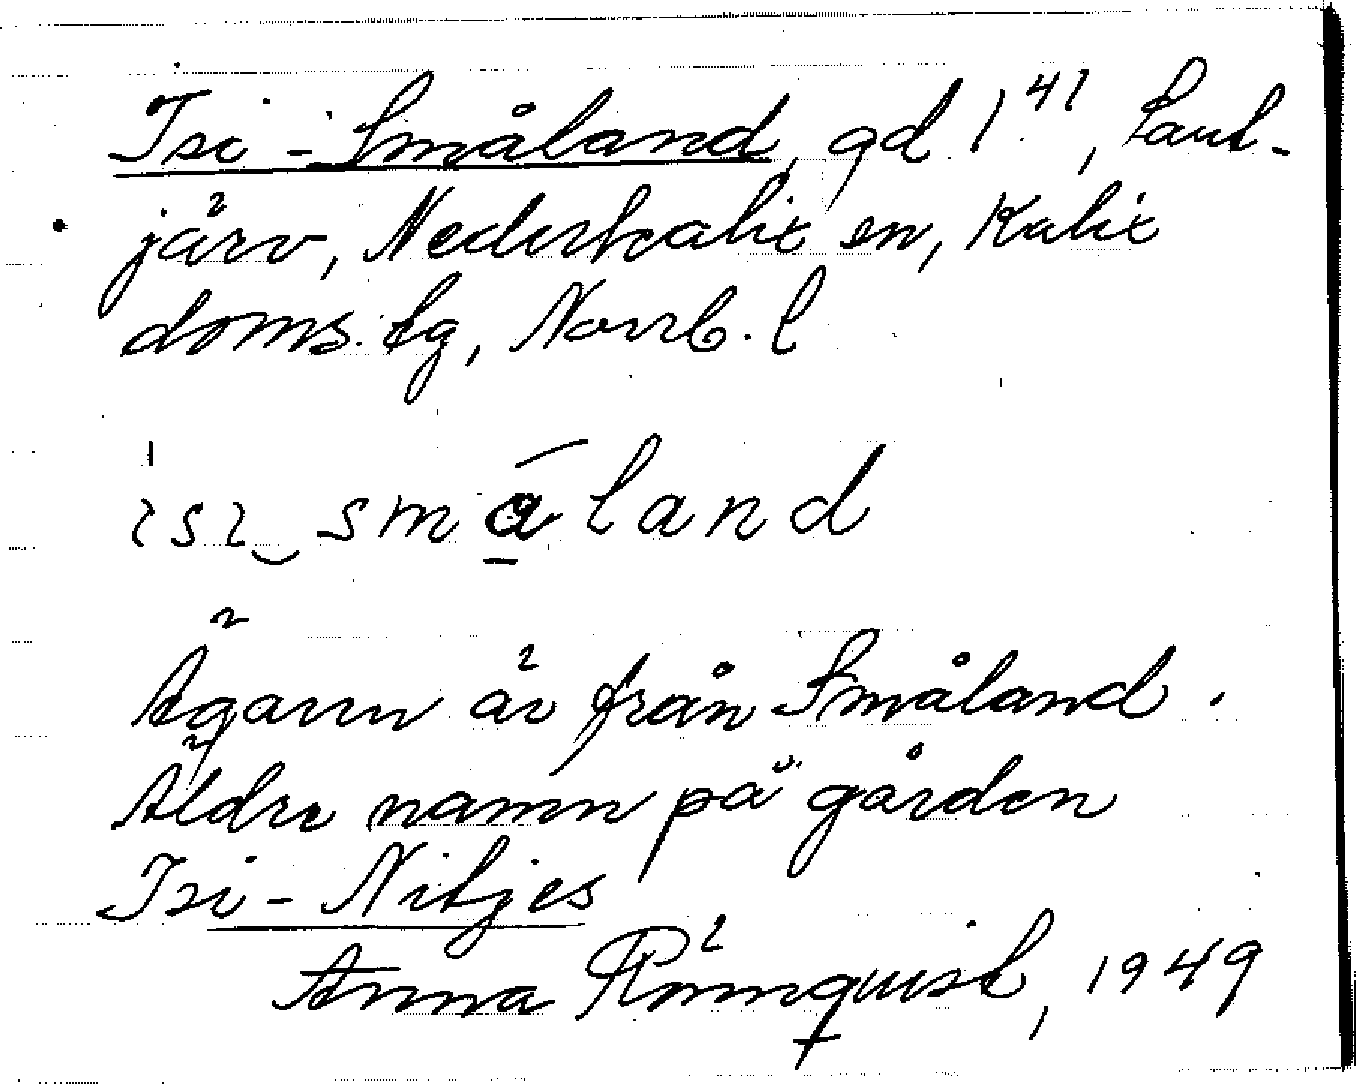 Isi-Småland, gd 1⁴¹, Landjärv,
järv, Nederkalix sn, Kalix
doms. tg, Norrb. l
ısı‿småland
Ägaren är från Småland.
Äldre namn på gården
Isi-Nitjes
Anna Römquist, 1949